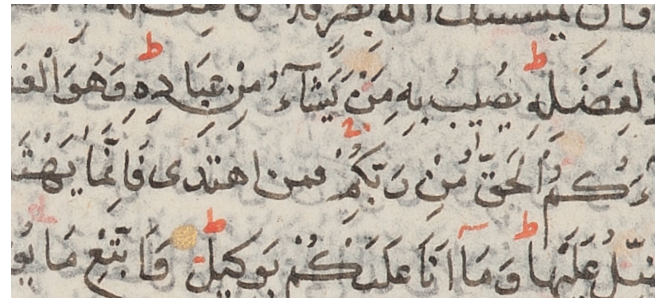 وان يمسسك الله بضر فلا
لِفَضْلِهِ يُصِيبُ بِهِ مَنْ يَشَآءُ مِنْ عِبَادِهِ وَهُوَ الْغَفُ
ءَكُمُ الْحَقُّ مِنْ رَبِّكُمْ فمن اهْتَدَى فَاِنَّمَا يَهْتَ
ضِلُّ عَلَيْهَا وَمَآ اَنَا عَلَيْكُمْ بِوَكِيلٍ وَاتَّبِعْ مَا يُو